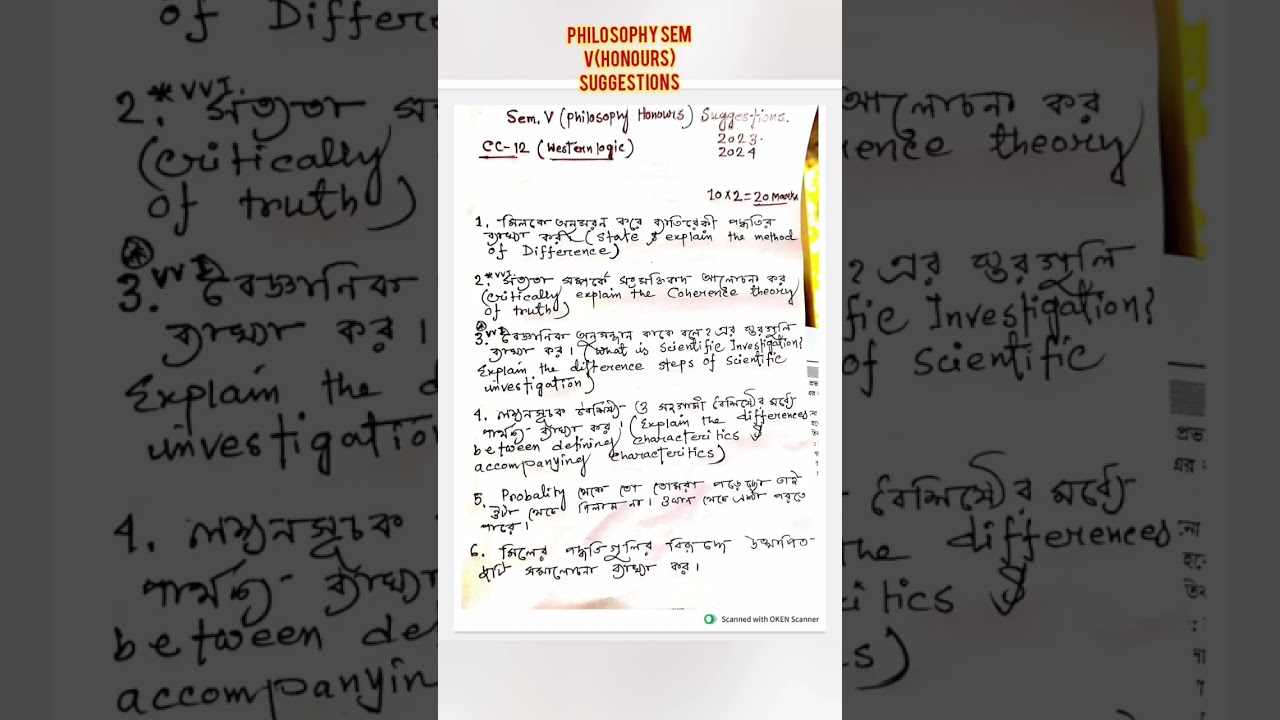 PHILOSOPHY SEM
V(HONOURS)
SUGGESTIONS
Sem. V (Philosophy Honours) Suggestions.
2023.
CC-12 (Western logic)
2024
10×2=20 Marks
1. মিলকে অনুসরন করে ব্যাতিরেকী পদ্ধতির
ব্যাখ্যা কর। (State & explain the method
of Difference)
2.*VVI. সত্যতা সম্পর্কে সংসক্তিবাদ আলোচনা কর
(critically explain the Coherence theory
of truth)
3. VVI বৈজ্ঞানিক অনুসন্ধান কাকে বলে? এর স্তরগুলি
ব্যাখ্যা কর। (What is Scientific Investigation?
Explain the difference steps of Scientific
investigation)
4. লক্ষনসূচক বৈশিষ্ট্য ও সহগামী বৈশিষ্ট্যের মধ্যে
পার্থক্য ব্যাখ্যা কর। (Explain the differences
between defining characteritics &
accompanying characteritics)
5. Probality থেকে তো তোমরা পড়েছো তাই
ওটা থেকে দিলাম না। ওখান থেকে একটা পরতে
পারে।
6. মিলের পদ্ধতিগুলির বিরুদ্ধে উত্থাপিত
সমালোচনা ব্যাখ্যা কর।
Scanned with OKEN Scanner